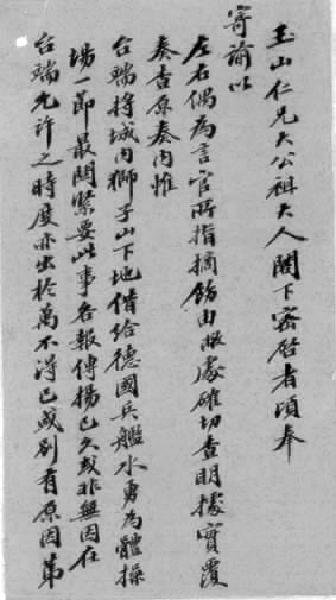 玉山仁兄大公祖大人閣下密啓者頃奉
寄諭以
左右偶為言官所指摘飭由敝處確切查明據實覆
奏查原奏內惟
台端將城內獅子山下地借給德國兵艦水勇為體操
場一節最關緊要此事各報傳揚已久或非無因在
台端允許之時度亦出於萬不得已或別有原因第